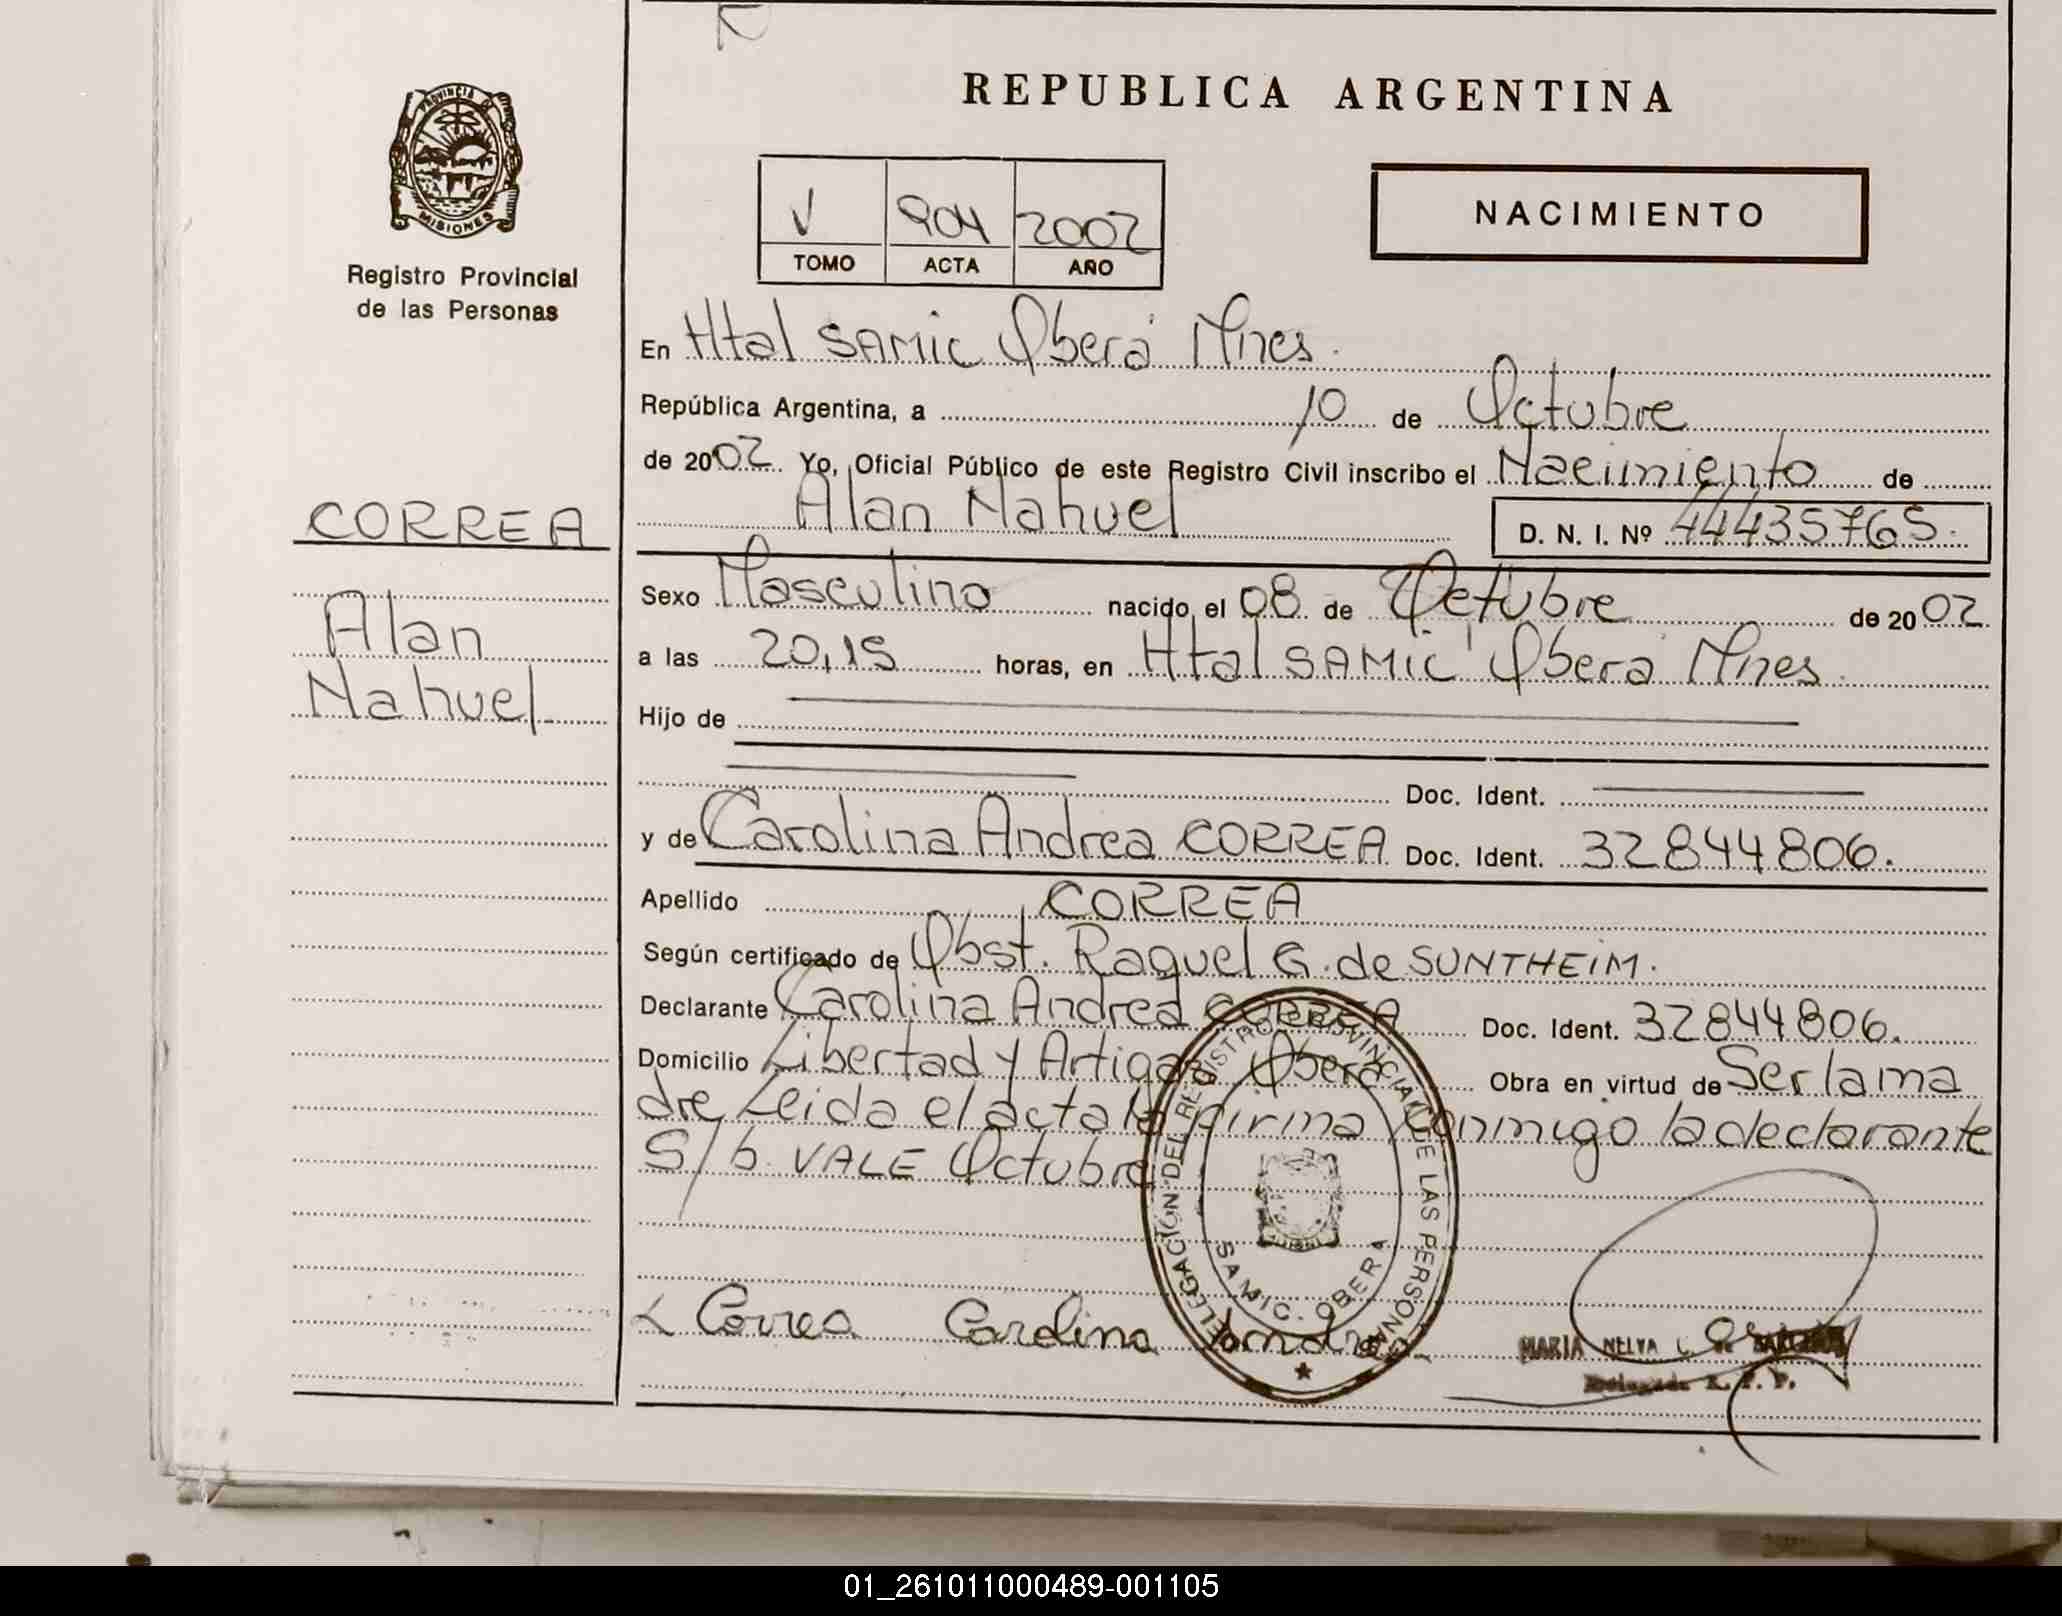 REPUBLICA ARGENTINA
PROVINCIA DE
MISIONES
Registro Provincial
de las Personas
V 904 2002
TOMO ACTA AÑO
NACIMIENTO
En Htal SAMIC Oberá Mnes.
República Argentina, a 10 de Octubre
de 2002 Yo, Oficial Público de este Registro Civil inscribo el Nacimiento de
Alan Nahuel D. N. I. Nº 44435765.
CORREA
Alan
Nahuel
Sexo Masculino nacido el 08 de Octubre de 2002
a las 20,15 horas, en Htal SAMIC Oberá Mnes.
Hijo de
Doc. Ident.
y de Carolina Andrea CORREA Doc. Ident. 32844806.
Apellido CORREA
Según certificado de Obst. Raquel G. de SUNTHEIM.
Declarante Carolina Andrea CORREA Doc. Ident. 32844806.
Domicilio Libertad y Artigas Oberá Obra en virtud de Ser la ma
dre Leida el acta la firma conmigo la declarante
S/b. VALE Octubre
DELEGACIÓN DEL REGISTRO PROVINCIAL DE LAS PERSONAS
SAMIC. OBERA
Correa Carolina Andrea
MARIA NELVA C. DE
Delegada R. P. P.
01_261011000489-001105